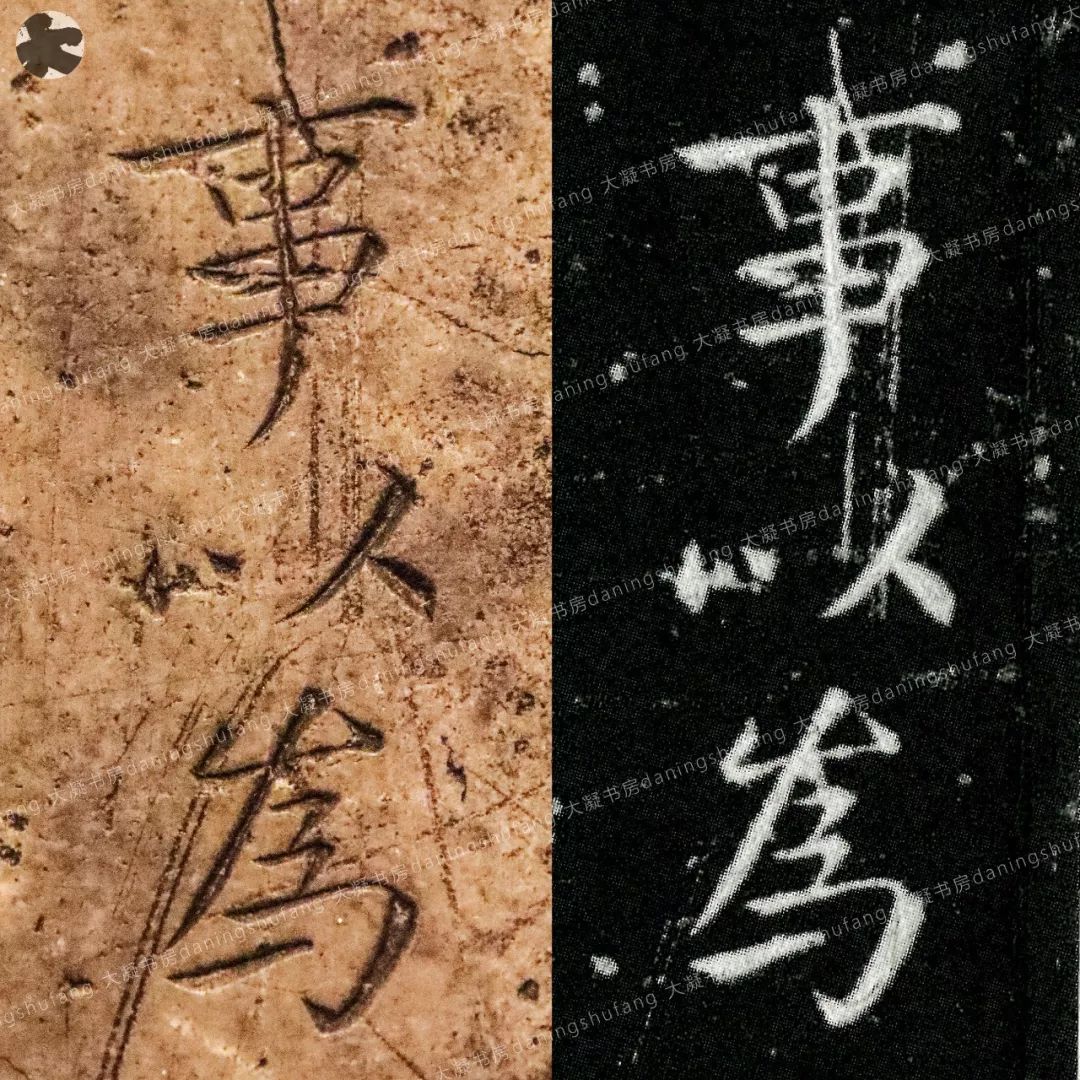 事以為
事以為
大凝书房daningshufang